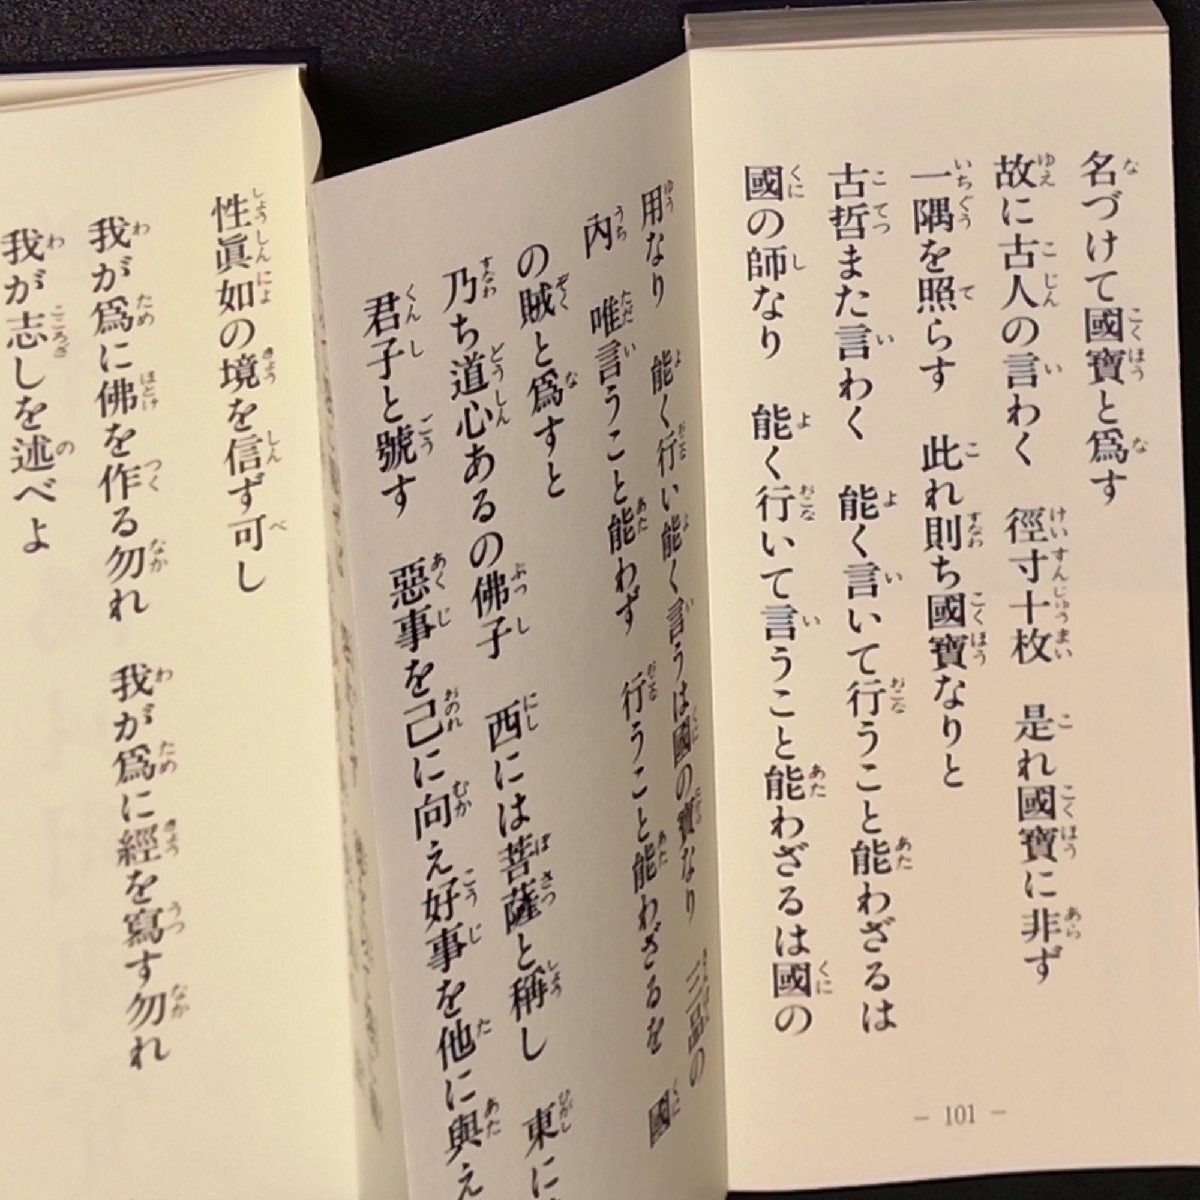 名づけて國寶と爲す
故に古人の言わく　徑寸十枚　是れ國寶に非ず
一隅を照らす　此れ則ち國寶なりと
古哲また言わく　能く言いて行うこと能わざるは
國の師なり　能く行いて言うこと能わざるは國の
用なり　能く行い能く言うは國の寶なり　三品の
內　唯言うこと能わず　行うこと能わざるを　國
の賊と爲すと
乃ち道心あるの佛子　西には菩薩と稱し　東に
君子と號す　惡事を己に向え好事を他に與え
性眞如の境を信ず可し
我が爲に佛を作る勿れ　我が爲に經を寫す勿れ
我が志しを述べよ
— 101 —